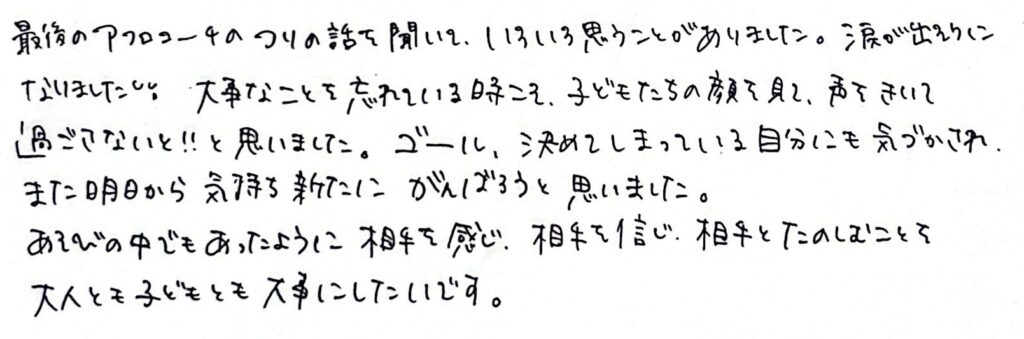 最後のアプローチのつりの話を聞いて、いろいろ思うことがありました。涙が出そうに
なりました 大事なことを忘れている時こそ、子どもたちの顔を見て、声をきいて
過ごさないと!!と思いました。ゴール、決めてしまっている自分にも気づかされ、
また明日から気持ち新たにがんばろうと思いました。
あそびの中でもあったように相手を感じ、相手を信じ、相手とたのしむことを
大人とも子どもとも大事にしたいです。